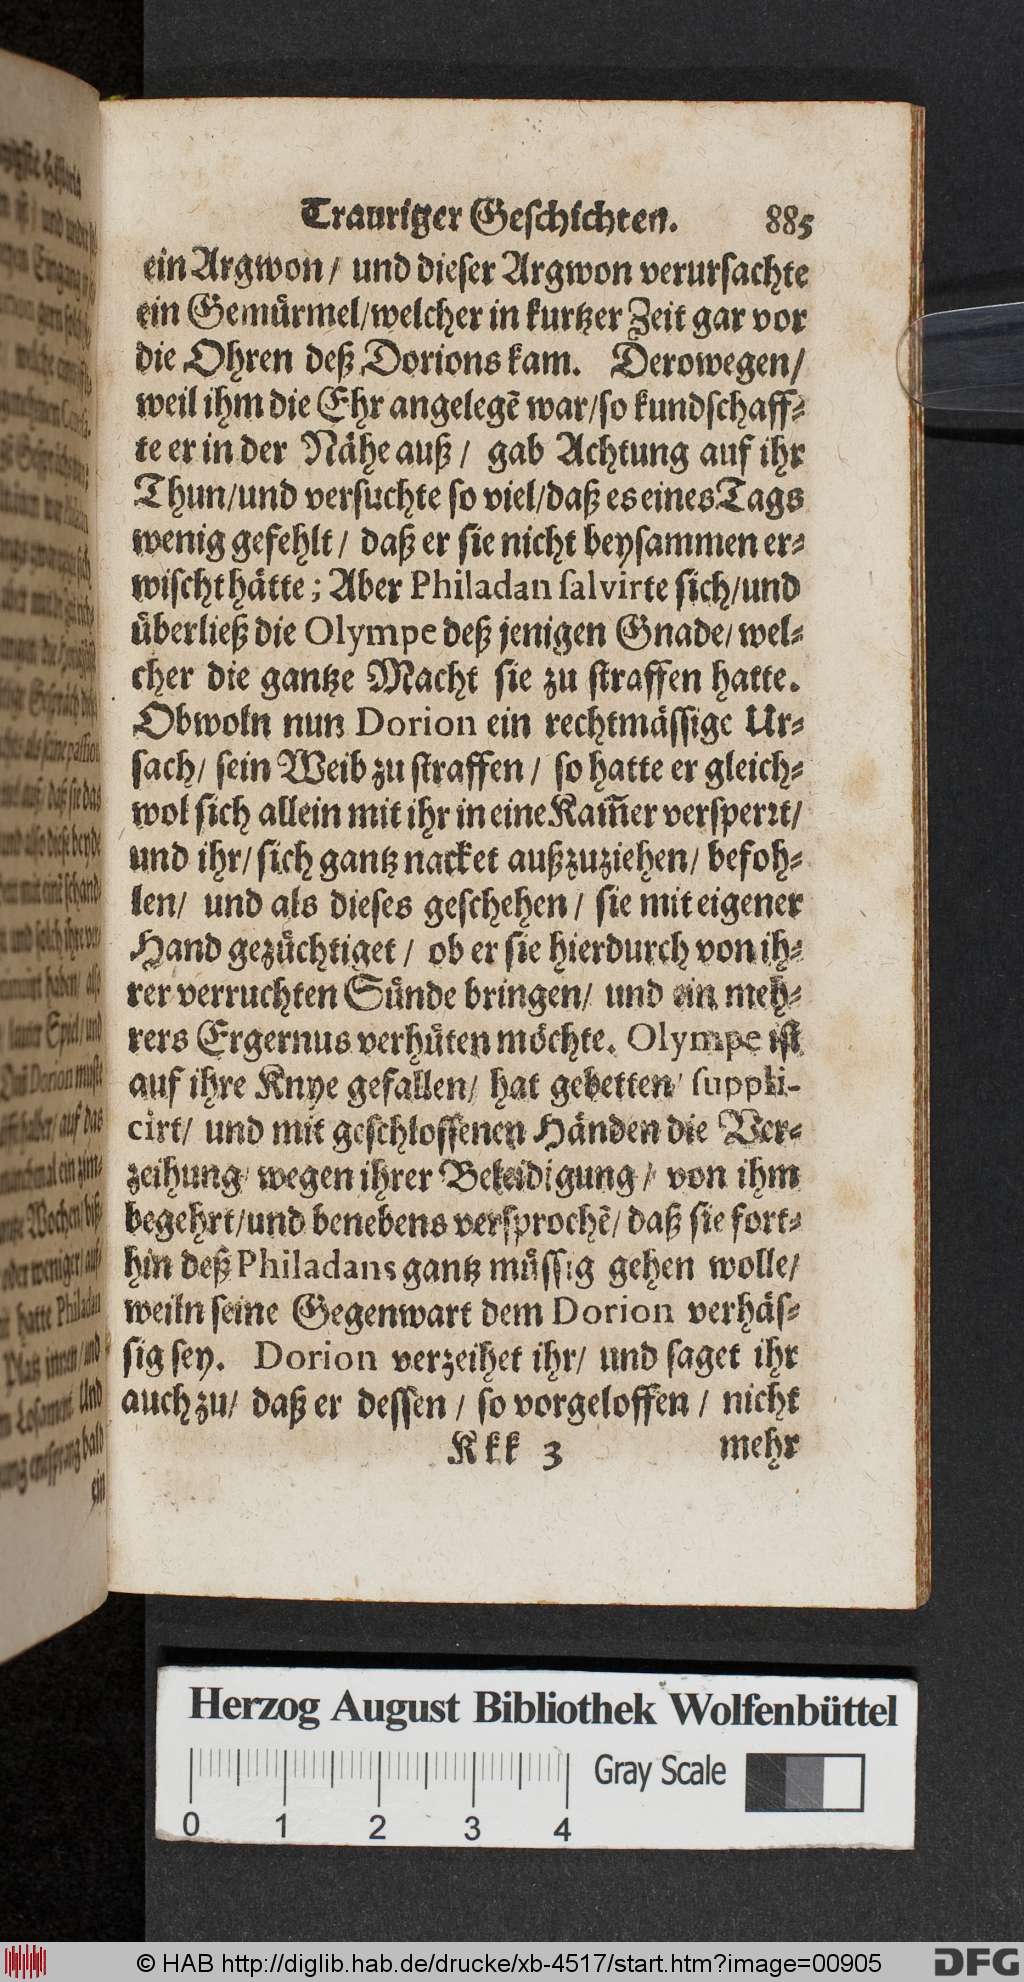 Trauriger Geschichten. 885
ein Argwon / und dieser Argwon verursachte
ein Gemürmel/welcher in kurtzer Zeit gar vor
die Ohren deß Dorions kam. Derowegen/
weil ihm die Ehr angelegẽ war/so kundschaff-
te er in der Nähe auß / gab Achtung auf ihr
Thun/und versuchte so viel/daß es eines Tags
wenig gefehlt / daß er sie nicht beysammen er-
wischt hätte; Aber Philadan salvirte sich/und
überließ die Olympe deß jenigen Gnade/ wel-
cher die gantze Macht sie zu straffen hatte.
Obwoln nun Dorion ein rechtmässige Ur-
sach/ sein Weib zu straffen / so hatte er gleich-
wol sich allein mit ihr in eine Kam̃er versperrt/
und ihr/ sich gantz nacket außzuziehen/ befoh-
len/ und als dieses geschehen / sie mit eigener
Hand gezüchtiget / ob er sie hierdurch von ih-
rer verruchten Sünde bringen/ und ein meh-
rers Ergernus verhüten möchte. Olympe ist
auf ihre Knye gefallen/ hat gebetten/ suppli-
cirt/ und mit geschlossenen Händen die Ver-
zeihung/ wegen ihrer Beleidigung / von ihm
begehrt/und benebens versprochẽ/ daß sie fort-
hin deß Philadans gantz müssig gehen wolle/
weiln seine Gegenwart dem Dorion verhäs-
sig sey. Dorion verzeihet ihr/ und saget ihr
auch zu/ daß er dessen / so vorgeloffen / nicht
Kkk 3 mehr
Herzog August Bibliothek Wolfenbüttel
Gray Scale
0 1 2 3 4
© HAB http://diglib.hab.de/drucke/xb-4517/start.htm?image=00905
DFG